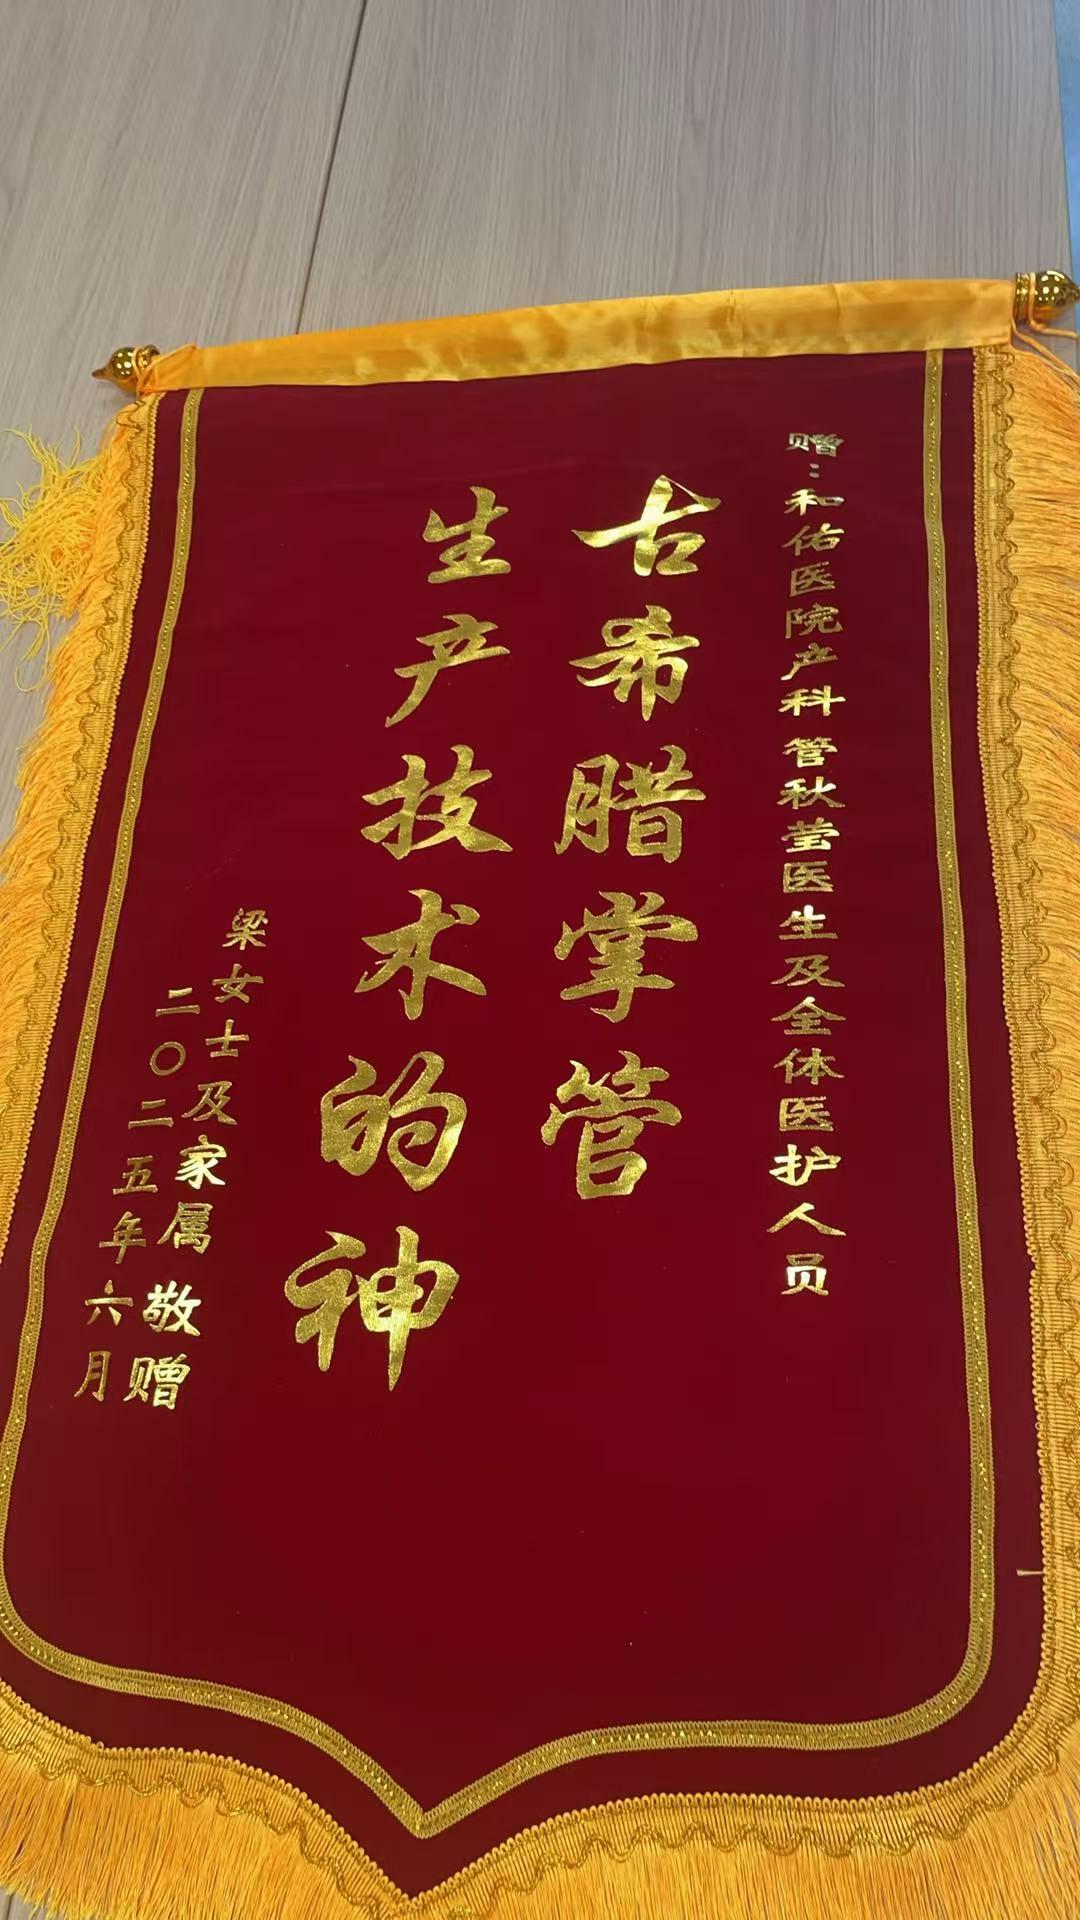 赠：和佑医院产科管秋莹医生及全体医护人员
古希腊掌管
生产技术的神
梁女士及家属 敬赠
二〇二五年六月